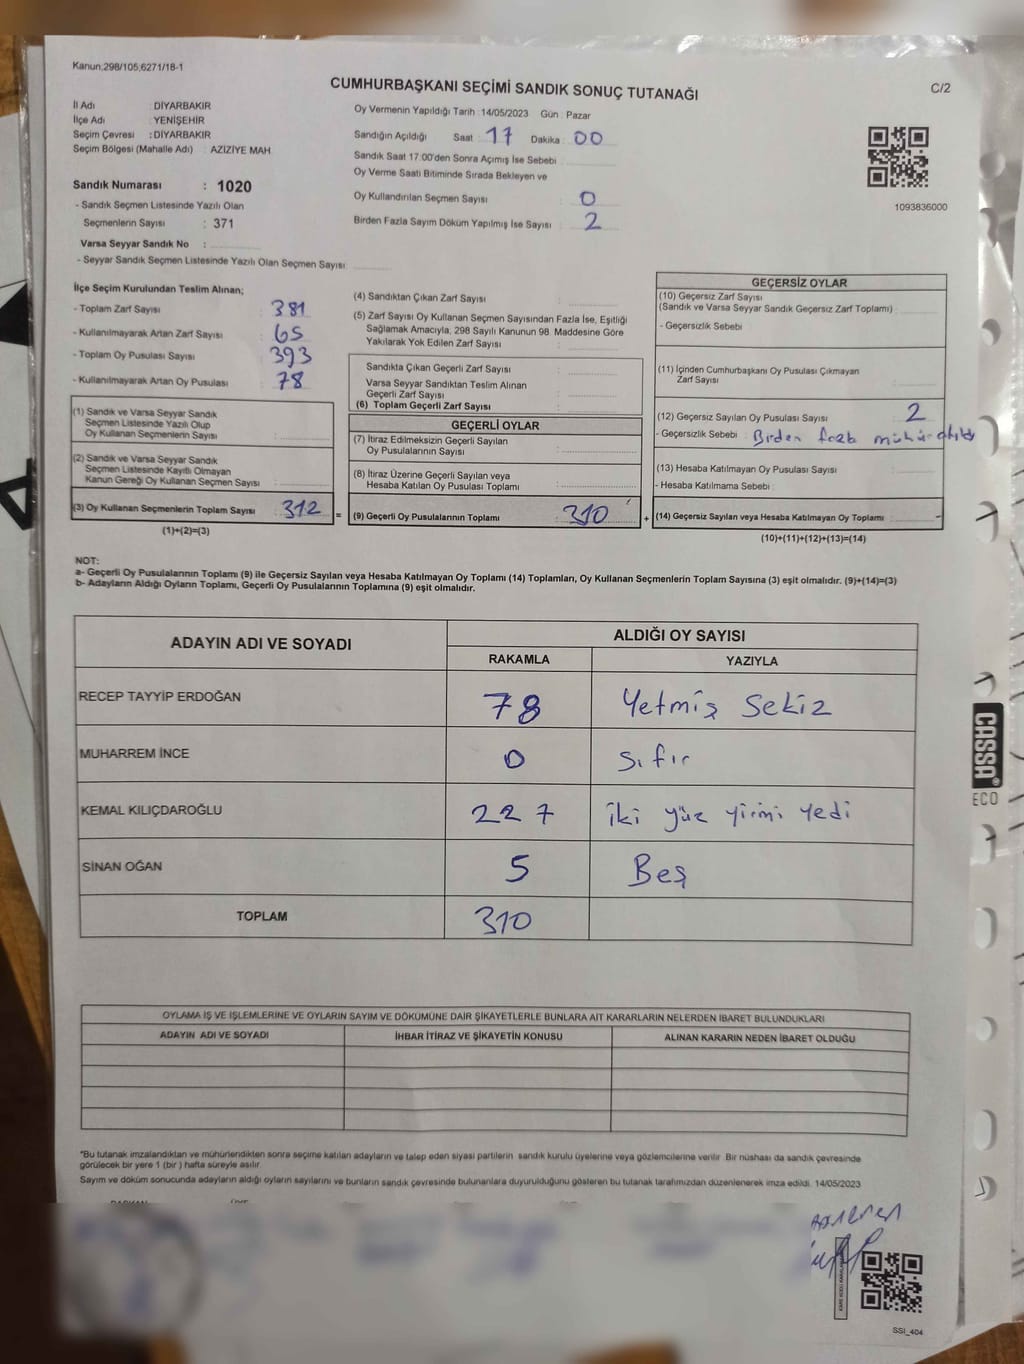 Kanun:298/105,6271/18-1
CUMHURBAŞKANI SEÇİMİ SANDIK SONUÇ TUTANAĞI
C/2
İl Adı : DİYARBAKIR
İlçe Adı : YENİŞEHİR
Seçim Çevresi : DİYARBAKIR
Seçim Bölgesi (Mahalle Adı) : AZİZİYE MAH.
Sandık Numarası : 1020
- Sandık Seçmen Listesinde Yazılı Olan
Seçmenlerin Sayısı : 371
Varsa Seyyar Sandık No :
- Seyyar Sandık Seçmen Listesinde Yazılı Olan Seçmen Sayısı:
Oy Vermenin Yapıldığı Tarih : 14/05/2023 Gün : Pazar
Sandığın Açıldığı Saat : 17 Dakika : 00
Sandık Saat 17:00'den Sonra Açımış İse Sebebi :
Oy Verme Saati Bitiminde Sırada Bekleyen ve
Oy Kullandırılan Seçmen Sayısı : 0
Birden Fazla Sayım Döküm Yapılmış İse Sayısı : 2
1093836000
İlçe Seçim Kurulundan Teslim Alınan;
- Toplam Zarf Sayısı : 381
- Kullanılmayarak Artan Zarf Sayısı : 65
- Toplam Oy Pusulası Sayısı : 393
- Kullanılmayarak Artan Oy Pusulası : 78
(1) Sandık ve Varsa Seyyar Sandık
Seçmen Listesinde Yazılı Olup
Oy Kullanan Seçmenlerin Sayısı :
(2) Sandık ve Varsa Seyyar Sandık
Seçmen Listesinde Kayıtlı Olmayan
Kanun Gereği Oy Kullanan Seçmen Sayısı :
(3) Oy Kullanan Seçmenlerin Toplam Sayısı : 312
(1)+(2)=(3)
=
(4) Sandıktan Çıkan Zarf Sayısı :
(5) Zarf Sayısı Oy Kullanan Seçmen Sayısından Fazla İse, Eşitliği
Sağlamak Amacıyla, 298 Sayılı Kanunun 98. Maddesine Göre
Yakılarak Yok Edilen Zarf Sayısı :
Sandıkta Çıkan Geçerli Zarf Sayısı :
Varsa Seyyar Sandıktan Teslim Alınan
Geçerli Zarf Sayısı :
(6) Toplam Geçerli Zarf Sayısı :
GEÇERLİ OYLAR
(7) İtiraz Edilmeksizin Geçerli Sayılan
Oy Pusulalarının Sayısı :
(8) İtiraz Üzerine Geçerli Sayılan veya
Hesaba Katılan Oy Pusulası Toplamı :
(9) Geçerli Oy Pusulalarının Toplamı : 310
+
GEÇERSİZ OYLAR
(10) Geçersiz Zarf Sayısı
(Sandık ve Varsa Seyyar Sandık Geçersiz Zarf Toplamı) :
- Geçersizlik Sebebi :
(11) İçinden Cumhurbaşkanı Oy Pusulası Çıkmayan
Zarf Sayısı :
(12) Geçersiz Sayılan Oy Pusulası Sayısı : 2
- Geçersizlik Sebebi : Birden fazla mühür
(13) Hesaba Katılmayan Oy Pusulası Sayısı :
- Hesaba Katılmama Sebebi :
(14) Geçersiz Sayılan veya Hesaba Katılmayan Oy Toplamı :
(10)+(11)+(12)+(13)=(14)
NOT:
a- Geçerli Oy Pusulalarının Toplamı (9) ile Geçersiz Sayılan veya Hesaba Katılmayan Oy Toplamı (14) Toplamları, Oy Kullanan Seçmenlerin Toplam Sayısına (3) eşit olmalıdır. (9)+(14)=(3)
b- Adayların Aldığı Oyların Toplamı, Geçerli Oy Pusulalarının Toplamına (9) eşit olmalıdır.
ADAYIN ADI VE SOYADI
ALDIĞI OY SAYISI
RAKAMLA YAZIYLA
RECEP TAYYİP ERDOĞAN 78 Yetmiş Sekiz
MUHARREM İNCE 0 Sıfır
KEMAL KILIÇDAROĞLU 227 iki yüz yirmi yedi
SİNAN OĞAN 5 Beş
TOPLAM 310
OYLAMA İŞ VE İŞLEMLERİNE VE OYLARIN SAYIM VE DÖKÜMÜNE DAİR ŞİKAYETLERLE BUNLARA AİT KARARLARIN NELERDEN İBARET BULUNDUKLARI
ADAYIN ADI VE SOYADI İHBAR İTİRAZ VE ŞİKAYETİN KONUSU ALINAN KARARIN NEDEN İBARET OLDUĞU
*Bu tutanak imzalandıktan ve mühürlendikten sonra seçime katılan adayların ve talep eden siyasi partilerin sandık kurulu üyelerine veya gözlemcilerine verilir. Bir nüshası da sandık çevresinde
görülecek bir yere 1 (bir ) hafta süreyle asılır.
Sayım ve döküm sonucunda adayların aldığı oyların sayılarını ve bunların sandık çevresinde bulunanlara duyurulduğunu gösteren bu tutanak tarafımızdan düzenlenerek imza edildi. 14/05/2023
SSI_404
CASSA
ECO